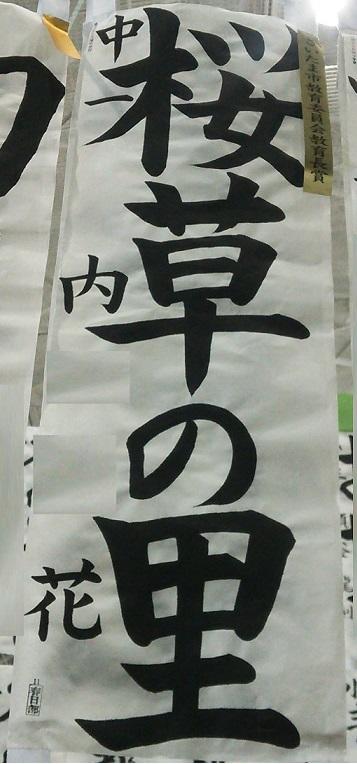 さいたま市教育委員会教育長賞
桜草の里
中一
内
花
春日部